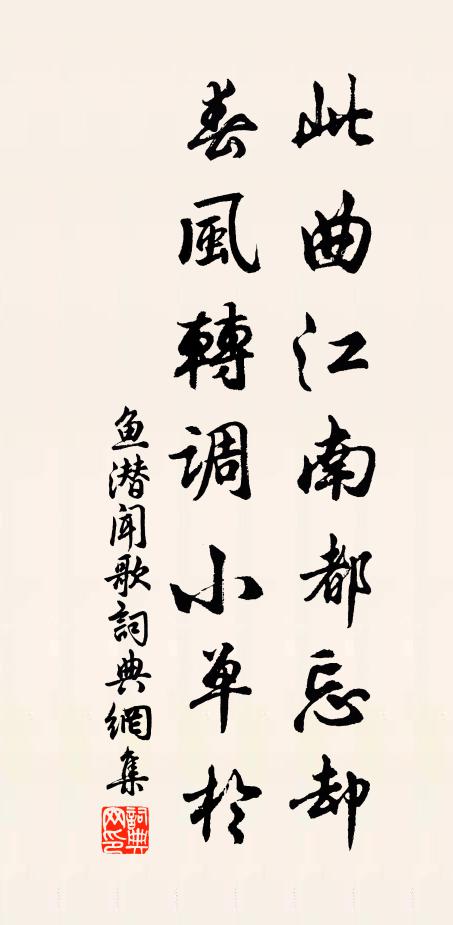 此曲江南都忘却
春風轉调小单於
鱼潜闻歌詞典網集
詞典網印